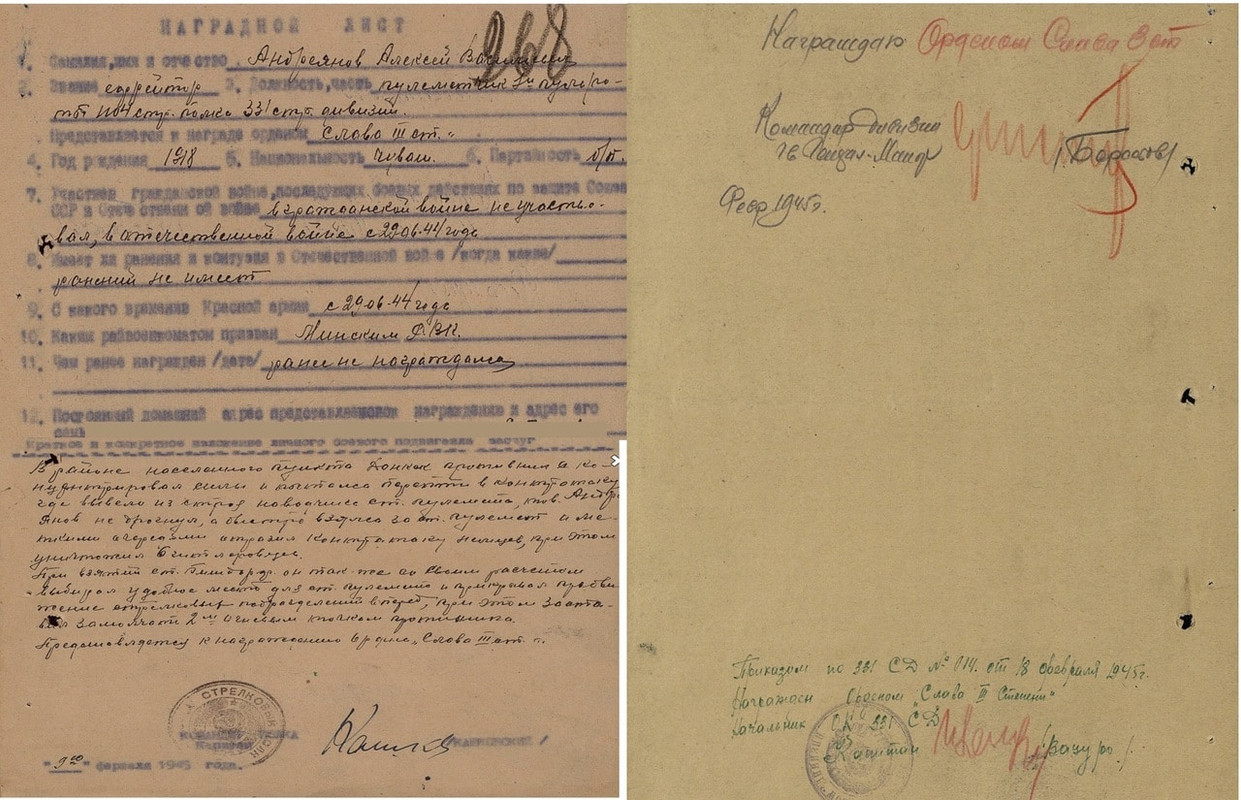 НАГРАДНОЙ ЛИСТ
268
1. Фамилия, имя и отчество Андреянов Алексей Васильевич
2. Звание ефрейтор 3. Должность, часть пулеметчик 3й пульро-
ты 1104 стр. полка 331 стр. дивизии.
Представляется к награде орденом "Слава III ст."
4. Год рождения 1918 5. Национальность чуваш. 6. Партийность б/п.
7. Участие в гражданской войне, последующих боевых действиях по защите Союза
ССР и Отечественной войне в гражданской войне не участво-
вал, в отечественной войне с 29.06.44 года
8. Имеет ли ранения и контузии в Отечественной войне /когда какие/
ранений не имеет
9. С какого времени в Красной армии с 29.06.44 года
10. Каким райвоенкоматом призван Минским РВК.
11. Чем ранее награжден /дата/ ранее не награждался
12. Постоянный домашний адрес представляемого к награждению и адрес его
семьи
Краткое и конкретное изложение личного боевого подвига или заслуг
В районе населенного пункта противник ско-
нцентрировал силы и пытался перейти в контратаку
где вывело из строя наводчика ст. пулемета, тов. Андре-
янов не дрогнул, а быстро взялся за ст. пулемет и ме-
ткими очередями отразил контратаку немцев, при этом
уничтожил 6 гитлеровцев.
При взятии ст. он так-же со своим расчетом
выбирал удобное место для ст. пулемета и прикрывал продви-
жение стрелковых подразделений вперед, при этом заста-
вил замолчать 2 огневым точкам противника.
Представляется к награждению ордена "Слава III ст."
СТРЕЛКОВЫЙ
КОМАНДИР ПОЛКА
"9го" февраля 1945 года.
Награждаю Орденом Слава 3 ст
Командир дивизии
гв. Генерал-Майор
Февр 1945г.
Приказом по 331 СД № 014. от 18 февраля 1945г.
Награжден Орденом "Слава III Степени"
Начальник 331 СД
Капитан /Вазуро/